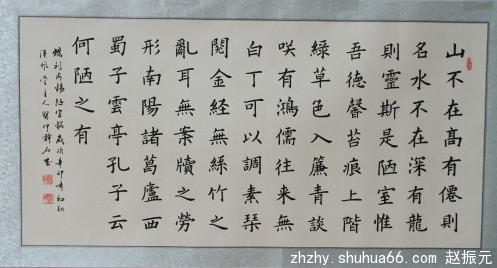 山不在高有僊則
名水不在深有龍
則靈斯是陋室惟
吾德馨苔痕上階
綠草色入簾青談
咲有鴻儒往來無
白丁可以調素琴
閱金經無絲竹之
亂耳無案牘之勞
形南陽諸葛廬西
蜀子雲亭孔子云
何陋之有
禹錫陋室銘歲次辛卯初秋
zhzhy.shuhua66.com 赵振元